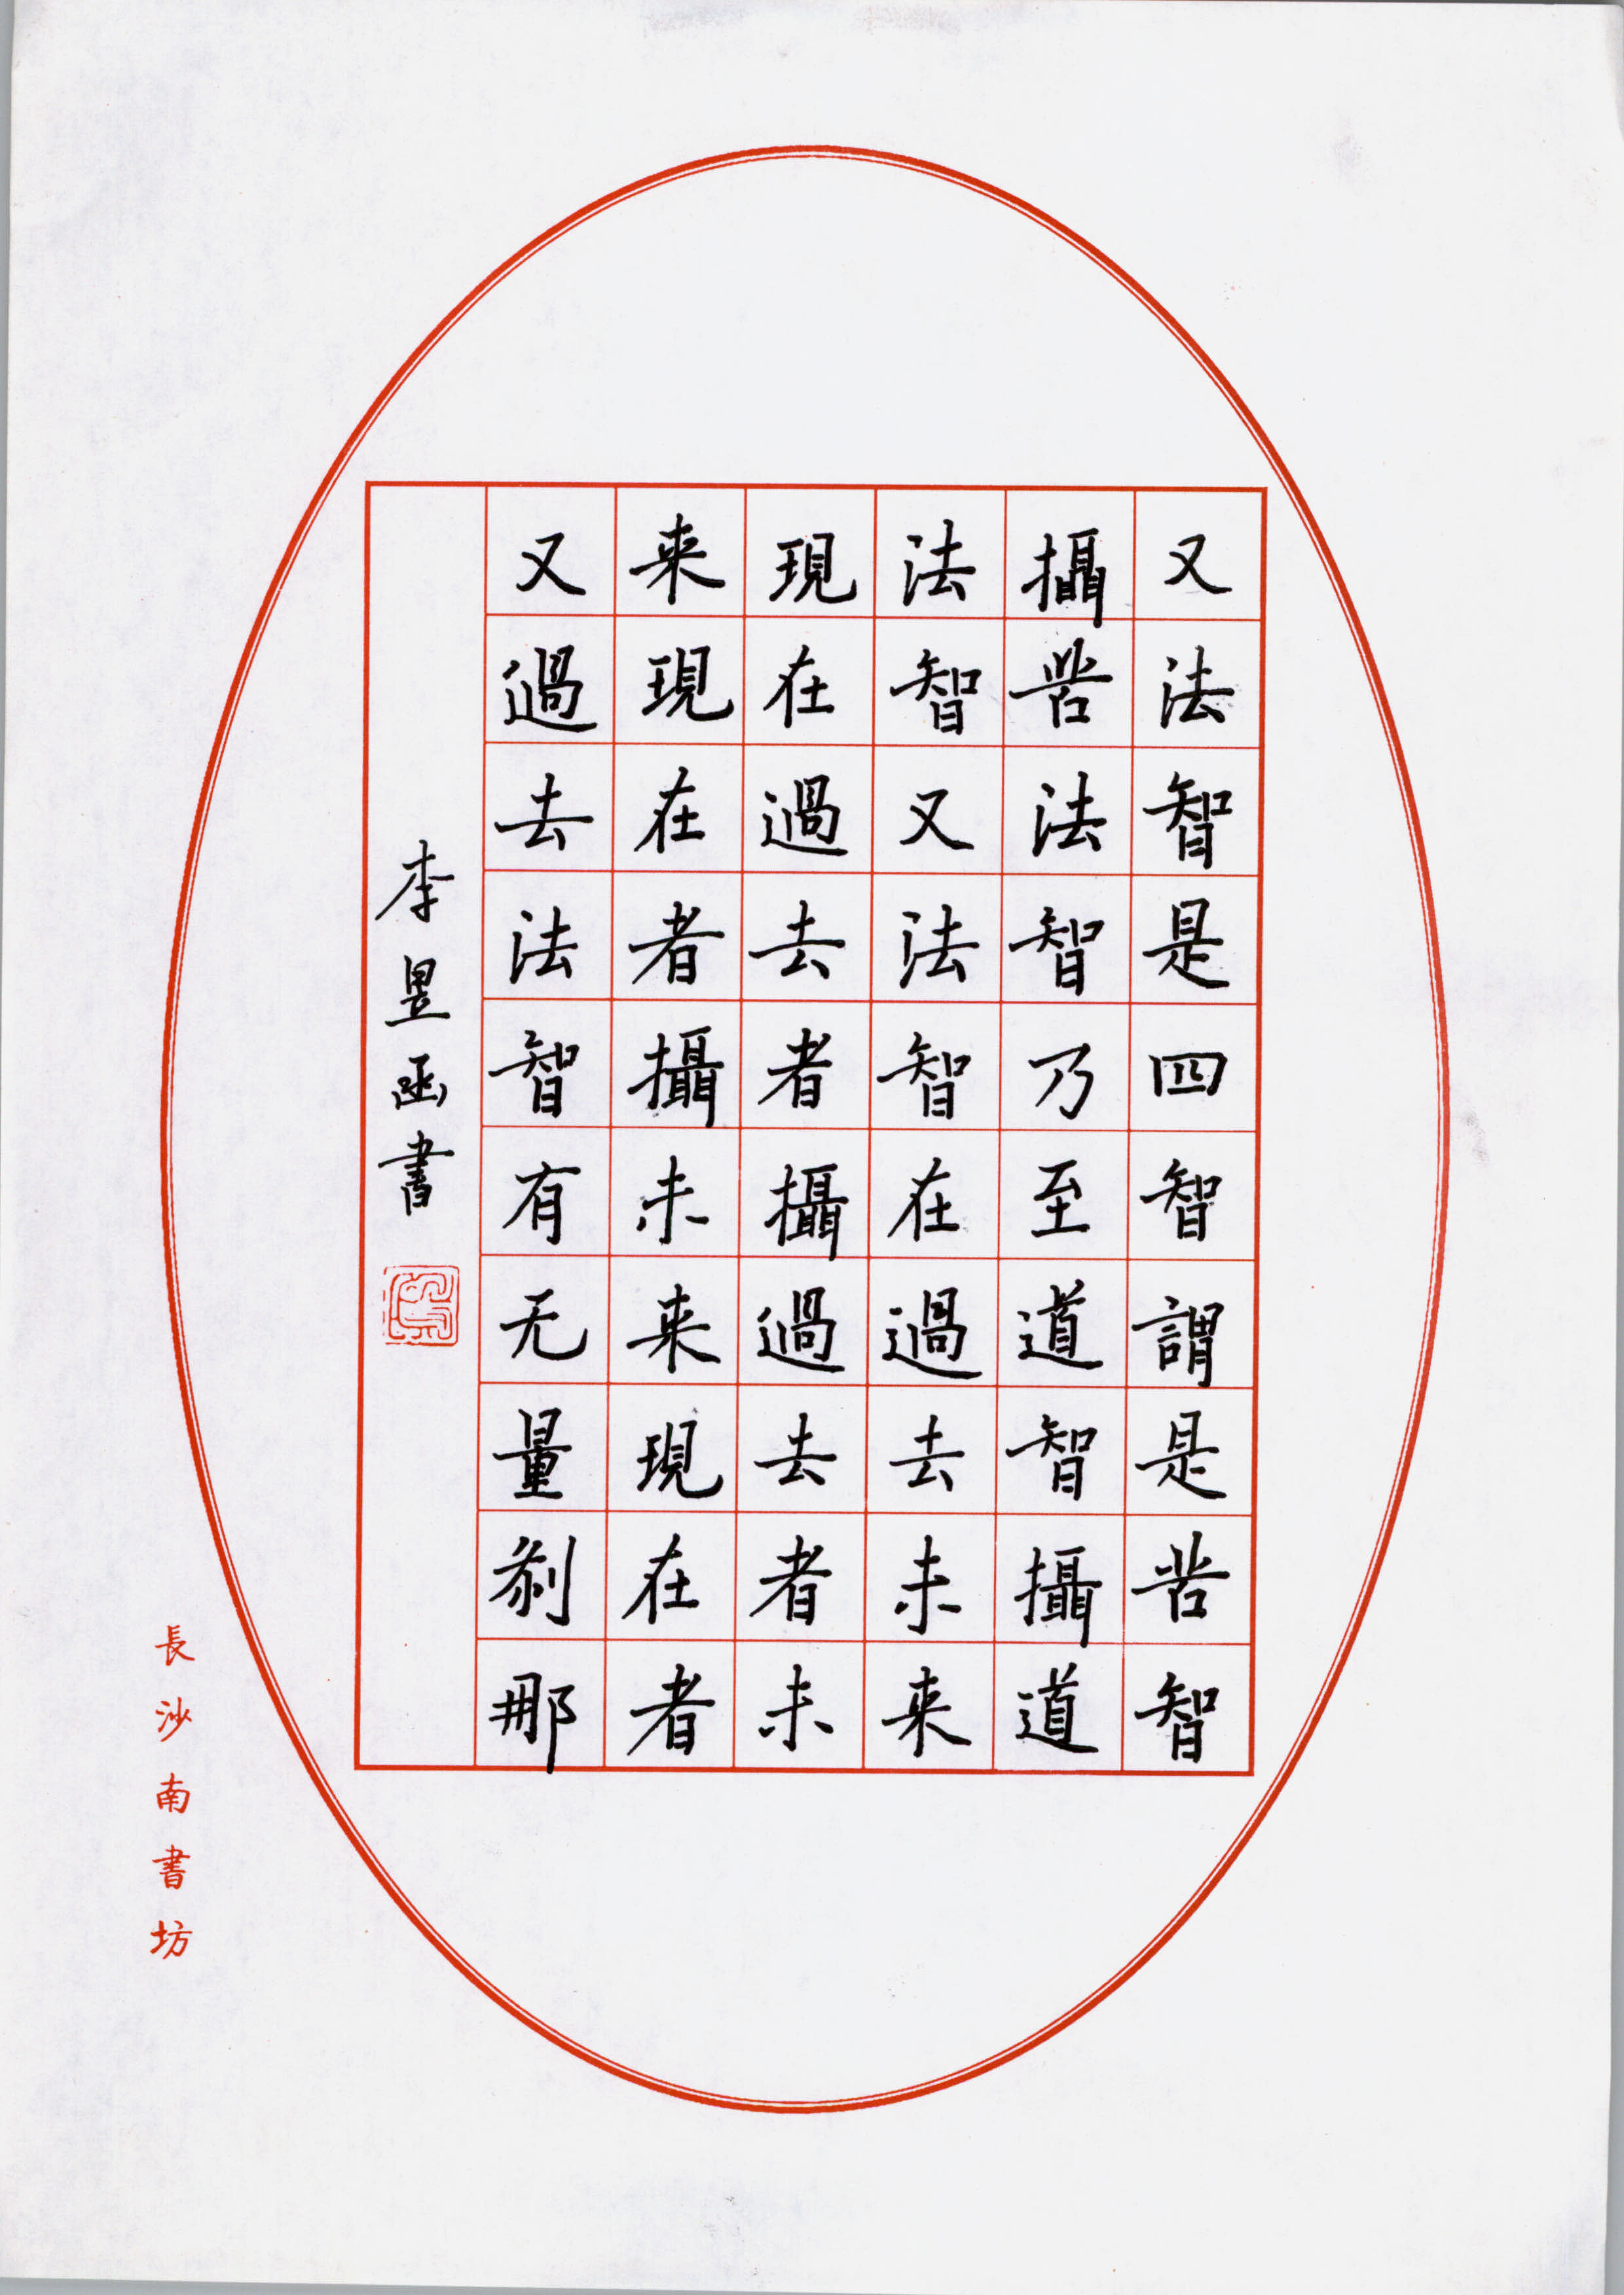 又法智是四智謂是苦智
攝苦法智乃至道智攝道
法智又法智在過去未来
現在過去者攝過去者未
来現在者攝未来現在者
又過去法智有无量刹那
李昱函書
長沙南書坊